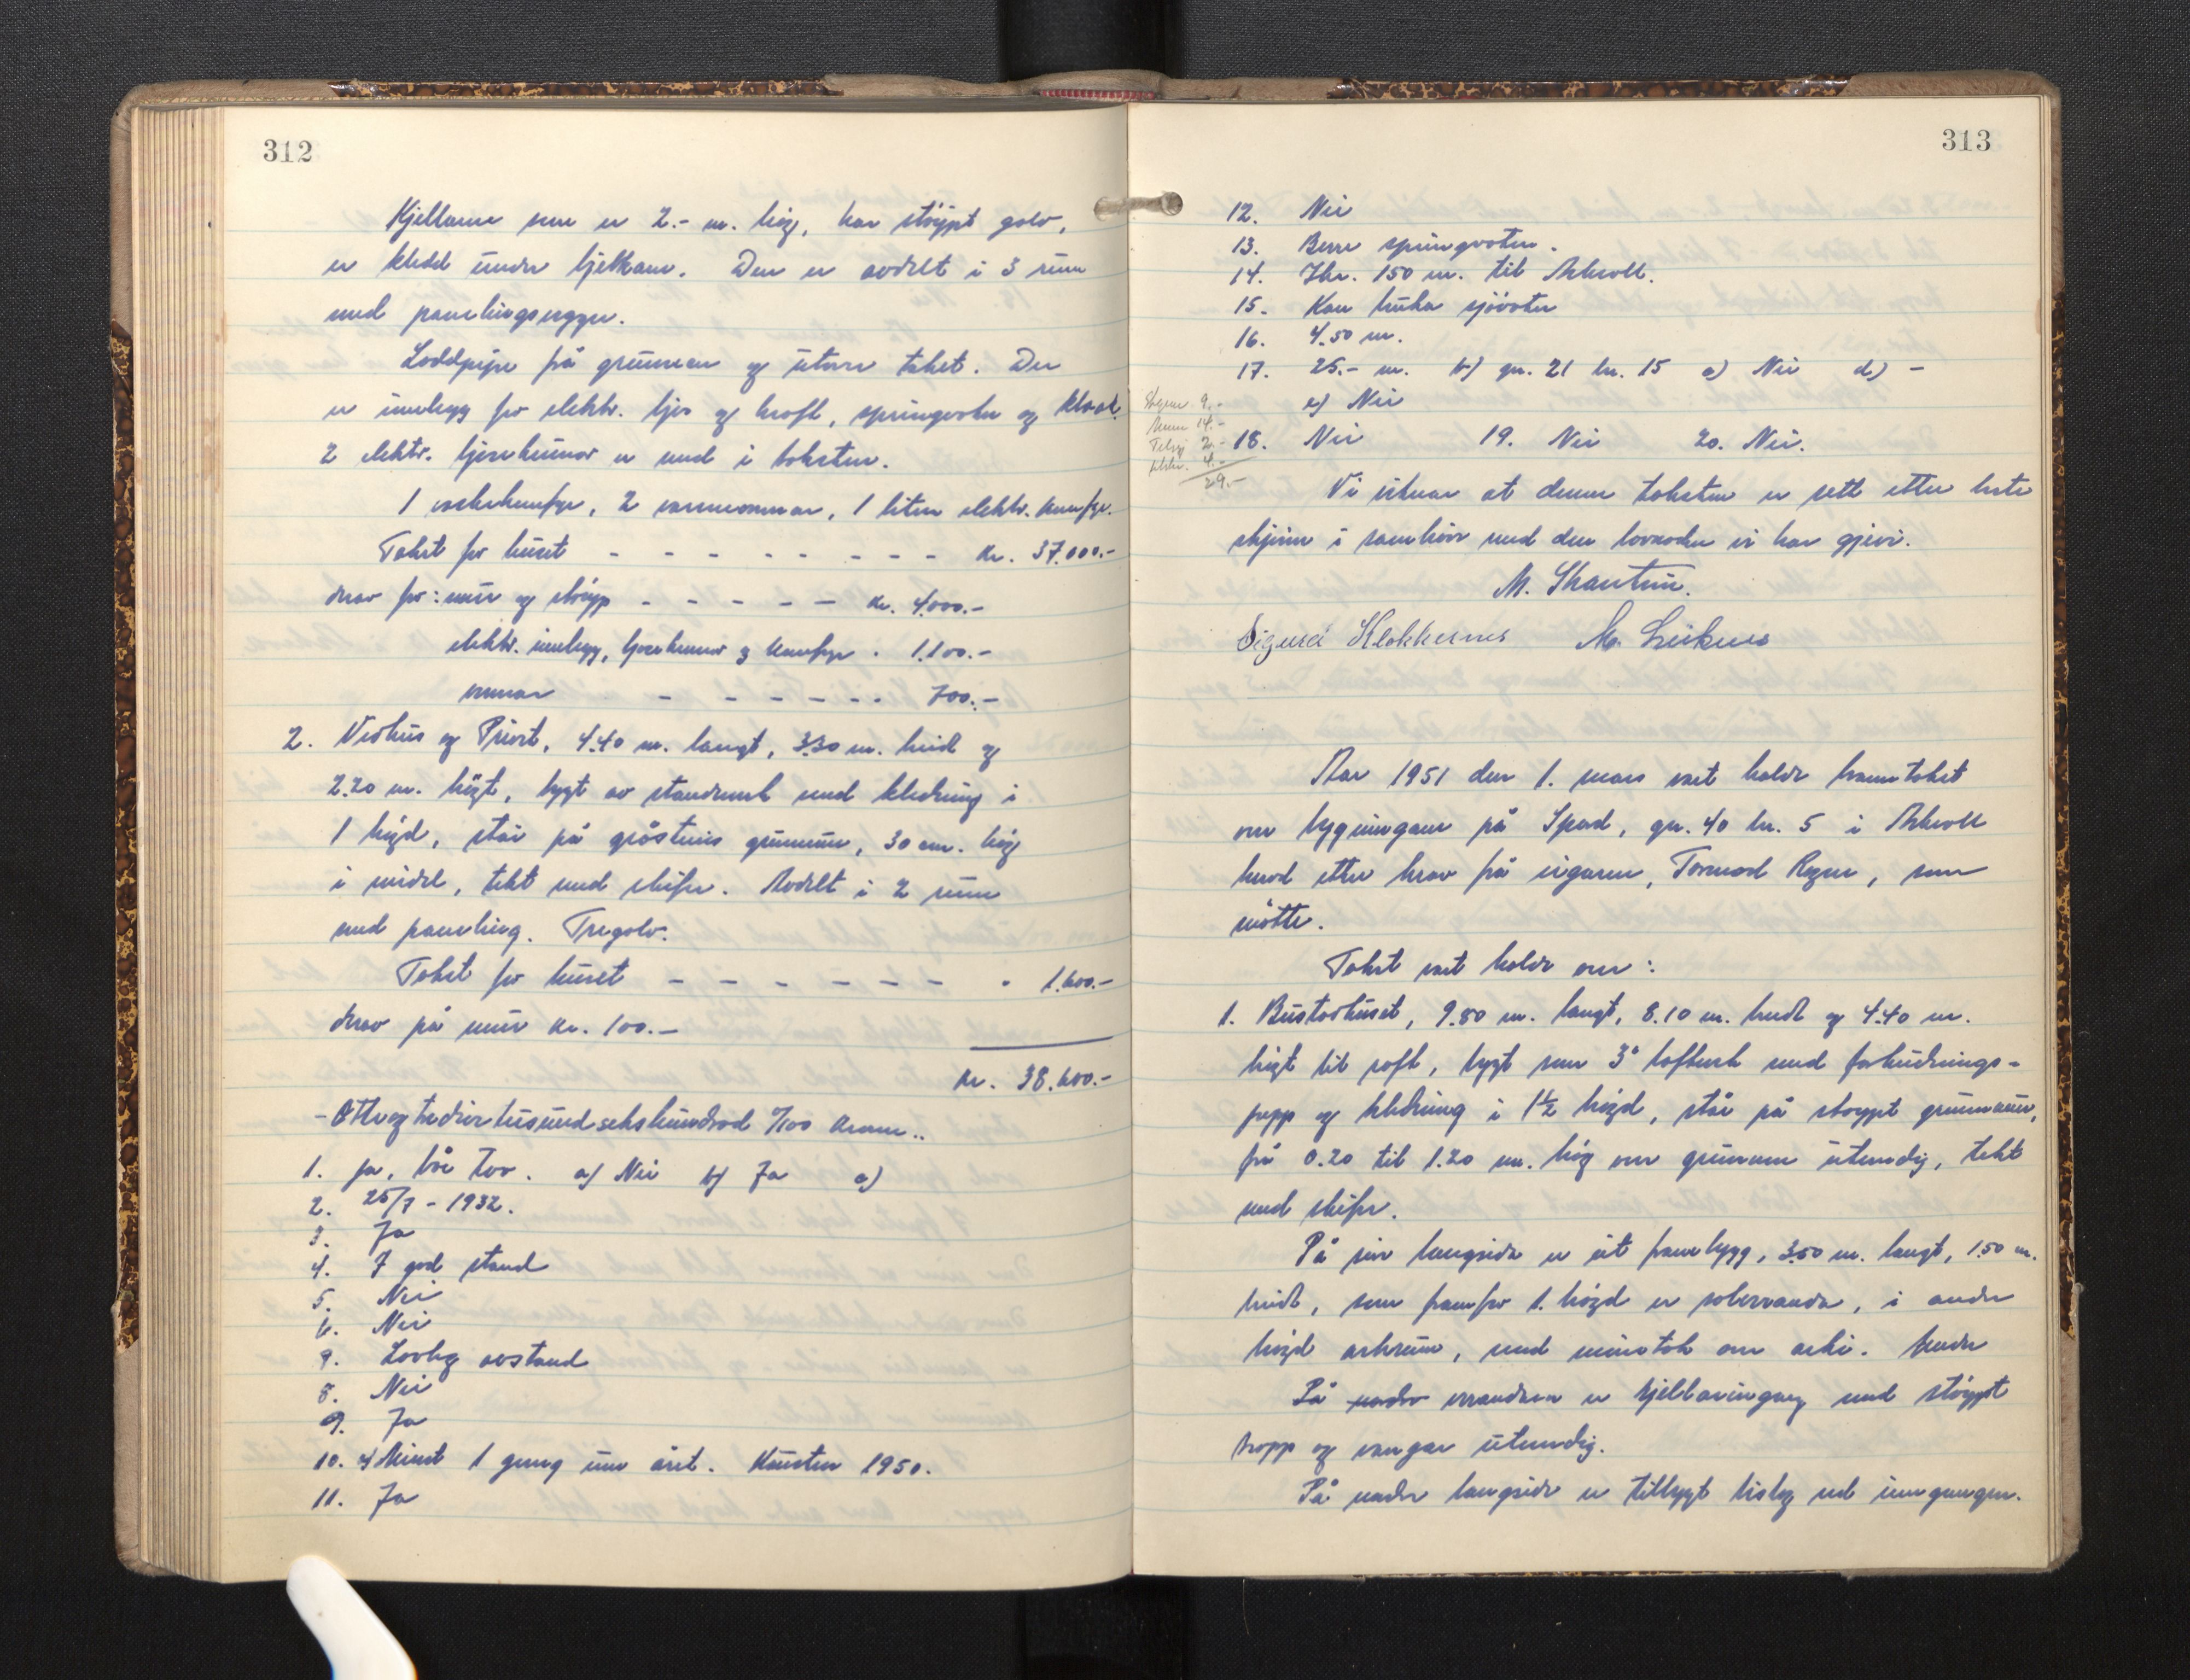 312
Kjellaren som er 2.- m. høg, har støypt golv,
er kledd under bjelkane. Den er avdelt i 3 rum
med panelingsveggar.
Loddpipe frå grunnen og utover taket. Der
er innlegg for elektr. ljos og kraft, springvatn og kloak.
2 elektr. ljoskrunor er med i taksten.
1 vaskekomfyr, 2 varmeomnar, 1 liten elektr. komfyr.
Takst for huset - - - - - - - - kr. 37.000.-
Herav for: mur og støyp - - - - - kr. 4000.-
elektr. innlegg, ljoskrunor og komfyr . 1.100.-
omnar - - - - - - 700.-
2. Vedhus og Privet, 4.40 m. langt, 3.30 m. breidt og
2.20 m. högt, bygt av standverk med kledning i
1 høgd, står på gråsteins grunnmur, 30 cm. høg
i midel, tekt med skifer. Avdelt i 2 rum
med paneling. Tregolv.
Takst for huset - - - - - - - . 1.600.-
Herav på mur kr. 100.-
Kr. 38.600.-
- Otteogtredive tusund sekshundrad 0/100 kroner..
1. Ja, båe two. a) Nei b) Ja c)
2. 25/7 - 1932.
3. Ja
4. I god stand
5. Nei
6. Nei
7. Lovleg avstand
8. Nei
9. Ja
10. c) Minst 1 gong um året. Hausten 1950.
11. Ja
313
12. Nei
13. Berre springvatn.
14. Ikr. 150 m. til Askvoll.
15. Kan bruka sjøvatn
16. 4.50 m.
17. 25.- m. b) gn. 21 bn. 15 c) Nei d) -
e) Nei
9.-
14.-
2.-
4.-
29.-
18. Nei 19. Nei 20. Nei.
Vi vitnar at denne taksten er sett etter beste
skjønn i samhøve med den lovnaden vi har gjeve.
M. Skantun.
Sigurd Klokkernes
Aar 1951 den 1. mars vart halde branntakst
over bygningane på gn. 40 bn. 5 i Askvoll
herad etter krav frå eigaren, Tormod som
møtte.
Takst vart halde over:
1. Bustadhuset, 9.80 m. langt, 8.10 m. breidt og 4.40 m.
høgt til raft, bygt som 3" loftverk med forhudnings-
papp og kledning i 1½ høgd, står på støypt grunnmur,
frå 0.20 til 1.20 m. høg over grunnen utvendig, tekt
med skifer.
På eine langsida er eit frambygg, 3.50 m. langt, 1.50 m.
breidt, som framfor 1. høgd er solveranda, i andre
høgd arkrum, med mønetak over arki. Under
På under verandaen er kjellarinngang med støypt
tropp og vangar utvendig.
På andre langsida er tilbygt bislag ved inngangen.